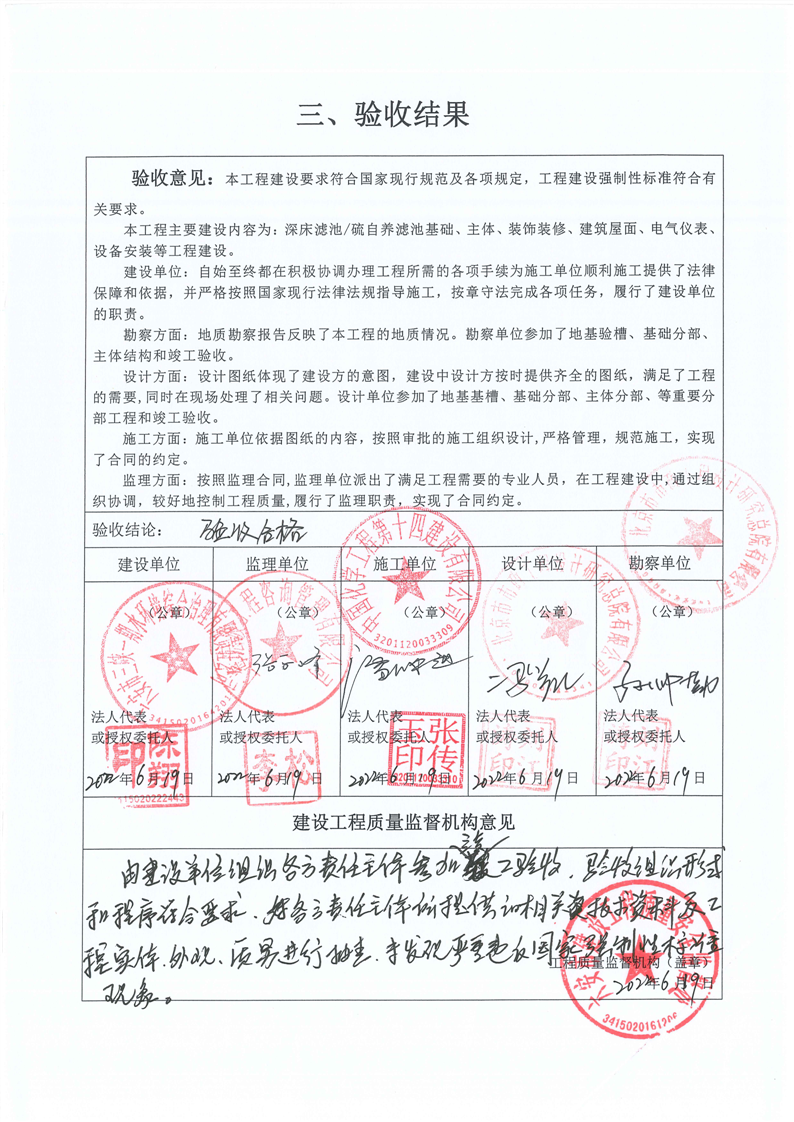 三、验收结果
验收意见：本工程建设要求符合国家现行规范及各项规定，工程建设强制性标准符合有
关要求。
本工程主要建设内容为：深床滤池/硫自养滤池基础、主体、装饰装修、建筑屋面、电气仪表、
设备安装等工程建设。
建设单位：自始至终都在积极协调办理工程所需的各项手续为施工单位顺利施工提供了法律
保障和依据，并严格按照国家现行法律法规指导施工，按章守法完成各项任务，履行了建设单位
的职责。
勘察方面：地质勘察报告反映了本工程的地质情况。勘察单位参加了地基验槽、基础分部、
主体结构和竣工验收。
设计方面：设计图纸体现了建设方的意图，建设中设计方按时提供齐全的图纸，满足了工程
的需要,同时在现场处理了相关问题。设计单位参加了地基基槽、基础分部、主体分部、等重要分
部工程和竣工验收。
施工方面：施工单位依据图纸的内容，按照审批的施工组织设计,严格管理，规范施工，实现
了合同的约定。
监理方面：按照监理合同,监理单位派出了满足工程需要的专业人员，在工程建设中,通过组
织协调，较好地控制工程质量,履行了监理职责，实现了合同约定。
验收结论： 验收合格
建设单位 监理单位 施工单位 设计单位 勘察单位
（公章） （公章） （公章） （公章） （公章）
中国化学工程第十四建设有限公司
3201120033309
法人代表 法人代表 法人代表 法人代表 法人代表
或授权委托人 或授权委托人 或授权委托人 或授权委托人 或授权委托人
陈翔印 李松 张传玉印
2022年6月19日 2022年6月19日 2022年6月19日 2022年6月19日 2022年6月19日
建设工程质量监督机构意见
由建设单位组织各方责任主体参加竣工验收，验收组织形式
和程序符合要求、对各方责任主体所提供的相关技术资料及工
程实体、外观、质量进行抽查，未发现严重违反国家强制性标准
现象。
工程质量监督机构（盖章）
2022年6月19日